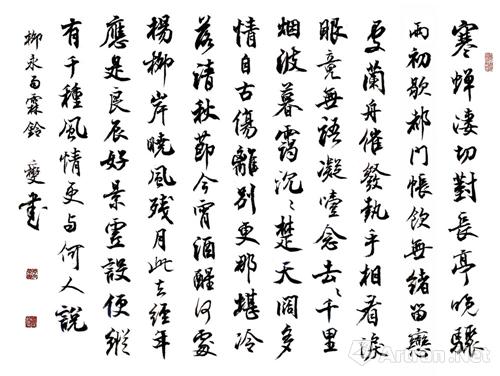 寒蟬凄切對長亭晚驟
雨初歇都門帳飲無緒留戀
處蘭舟催發執手相看淚
眼竟無語凝噎念去々千里
烟波暮靄沉々楚天闊多
情自古傷離別更那堪冷
落清秋節今宵酒醒何處
楊柳岸曉風殘月此去經年
應是良辰好景虛設便縱
有千種風情更与何人說
柳永雨霖鈴 書
Artron.Net